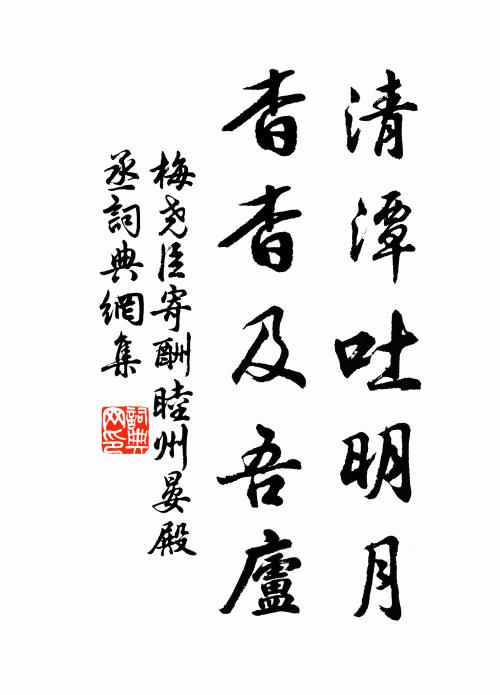 清潭吐明月
杳杳及吾廬
梅尧臣寄酬睦州晏殿
丞詞典網集
詞典网印